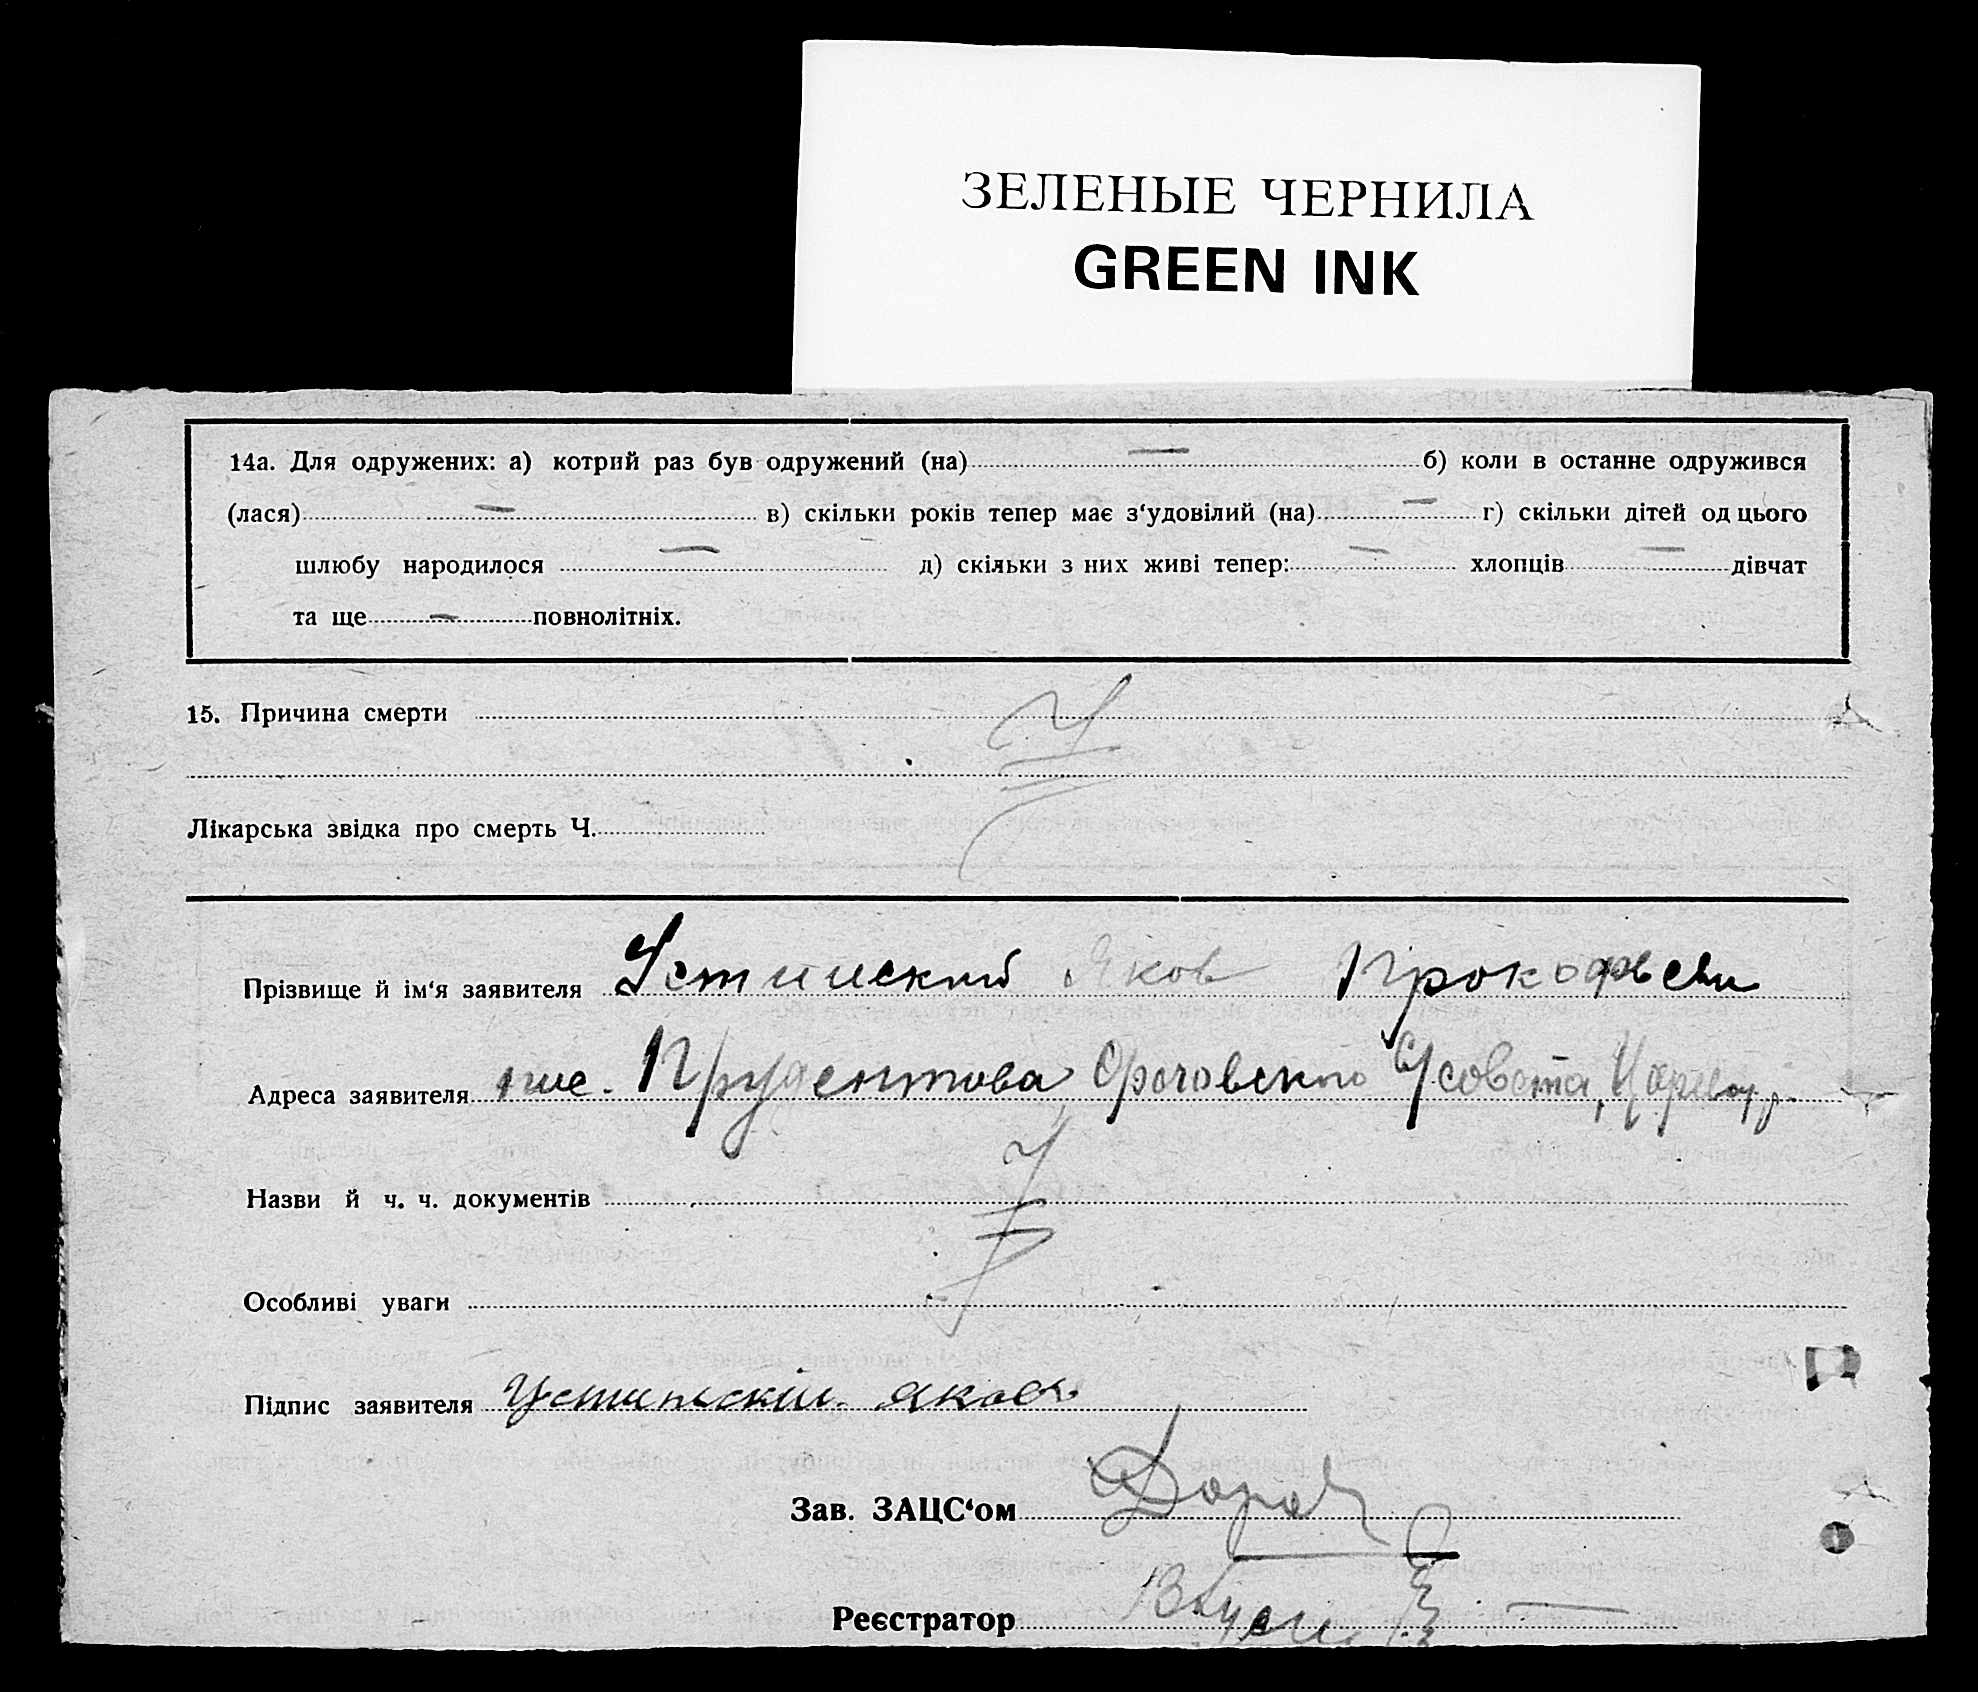 ЗЕЛЕНЫЕ ЧЕРНИЛА
GREEN INK
14а. Для одружених: а) котрий раз був одружений (на) — б) коли в останне одружився
(лася) — в) скільки років тепер має з‘удовілий (на) — г) скільки дітей од цього
шлюбу народилося — д) скільки з них живі тепер: — хлопців — дівчат
та ще — повнолітніх.
15. Причина смерти
Лікарська звідка про смерть Ч.
Прізвище й ім‘я заявителя Устимский Яков Прокофьеви
Адреса заявителя пос. С/совета,
Назви й ч. ч. документів
Особливі уваги
Підпис заявителя Яков
Зав. ЗАЦС‘ом
Реєстратор